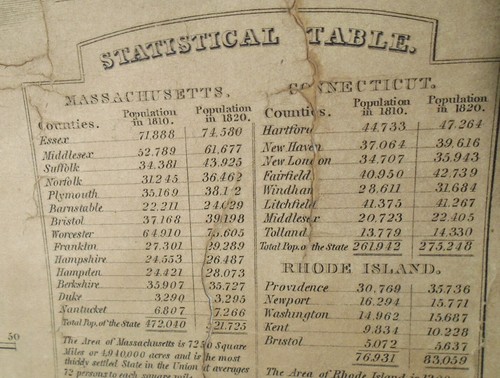 STATISTICAL TABLE.
MASSACHUSETTS.
Counties. Population in 1810. Population in 1820.
Essex 71.888 74.580
Middlesex 52.789 61.677
Suffolk 34.381 43.925
Norfolk 31.245 36.462
Plymouth 35.169
Barnstable 22.211 24.029
Bristol 37.168
Worcester 64.910
Franklin 27.301 29.289
Hampshire 24.553 26.487
Hampden 24.421 28.073
Berkshire 35.907 35.727
Duke 3.290 3.295
Nantucket 6.807 7.266
Total Pop. of the State 472.040
The Area of Massachusetts is 7250 Square
Miles or 4,940,000 acres and is the most
thickly settled State in the Union at averages
72 persons to each square
50
CONNECTICUT.
Counties. Population in 1810. Population in 1820.
Hartford 44.733 47.264
New Haven 37.064 39.616
New London 34.707 35.943
Fairfield 40.950 42.739
Windham 28.611 31.684
Litchfield 41.375 41.267
Middlesex 20.723 22.405
Tolland 13.779 14.330
Total Pop. of the State 261.942 275.248
RHODE ISLAND.
Providence 30.769 35.736
Newport 16.294 15.771
Washington 14.962 15.687
Kent 9.834 10.228
Bristol 5.072 5.637
76.931 83.059
The Area of Rhode Island is